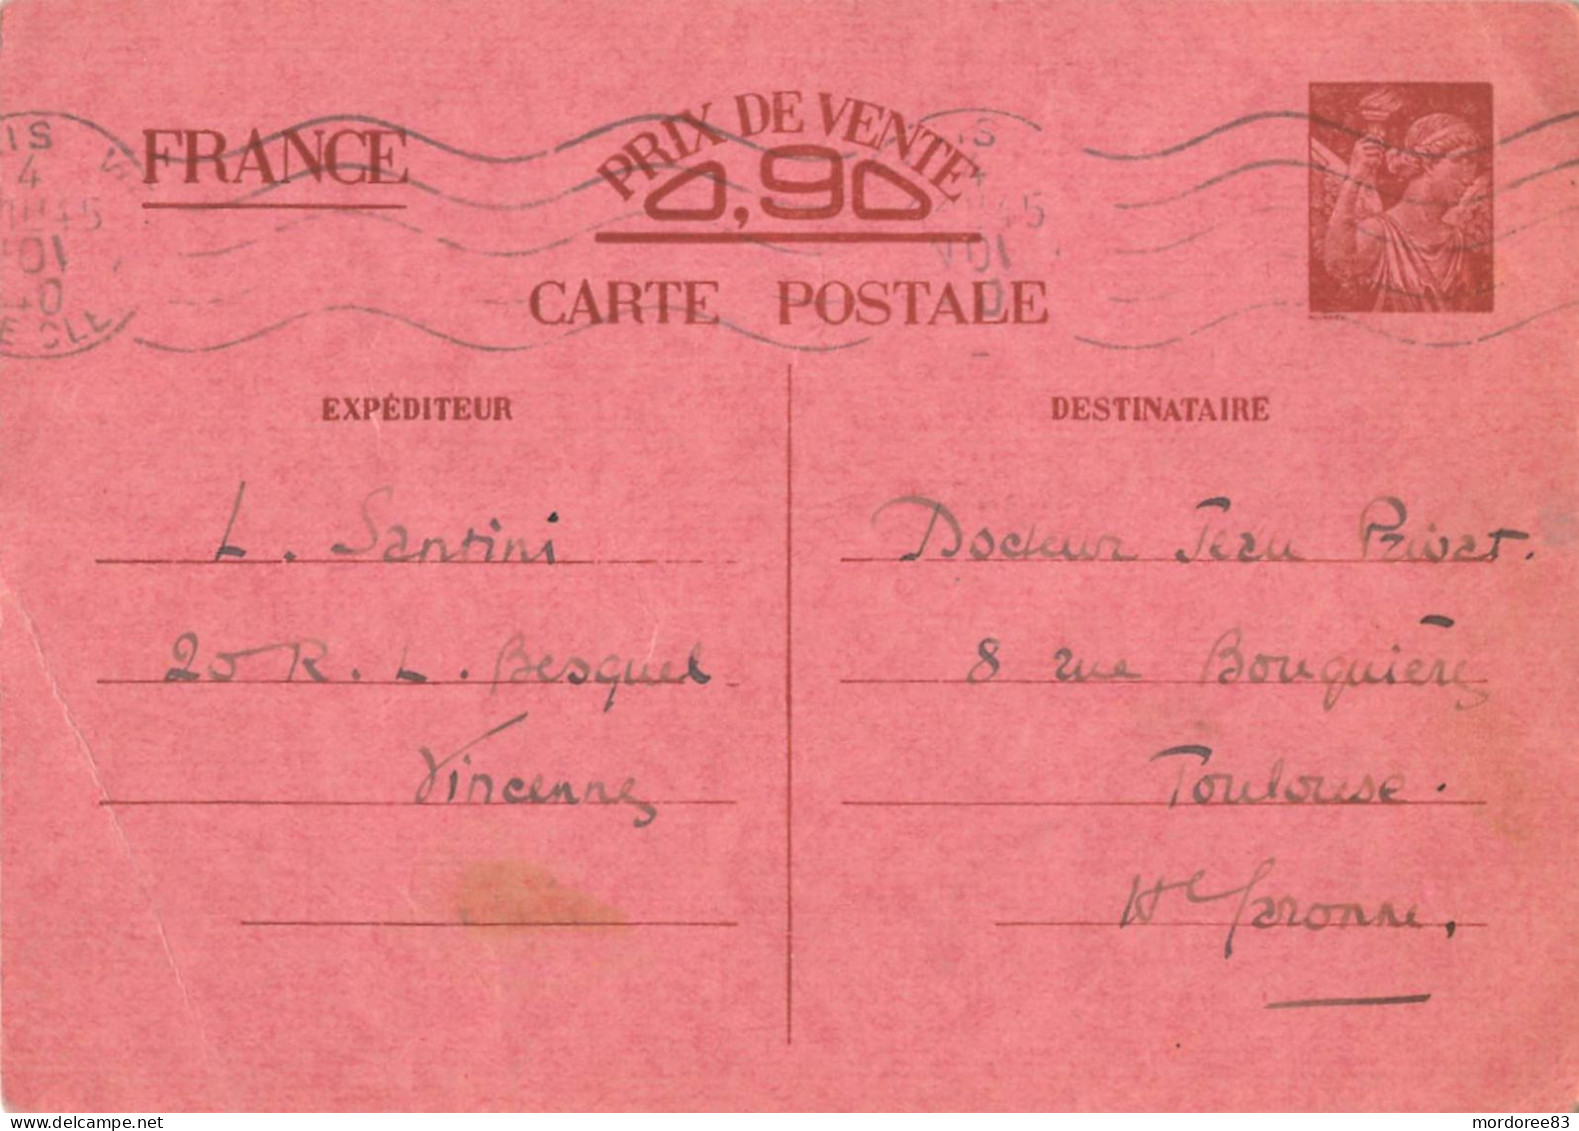 FRANCE
PRIX DE VENTE
0,90
CARTE POSTALE
IS
4
45
01
40
IS
45
01
0
EXPÉDITEUR
L. Santini
20 R. L. Besquel
Vincennes
DESTINATAIRE
Docteur Jean Privat.
8 rue Bouquières
Toulouse.
Hte Garonne.
mordoree83